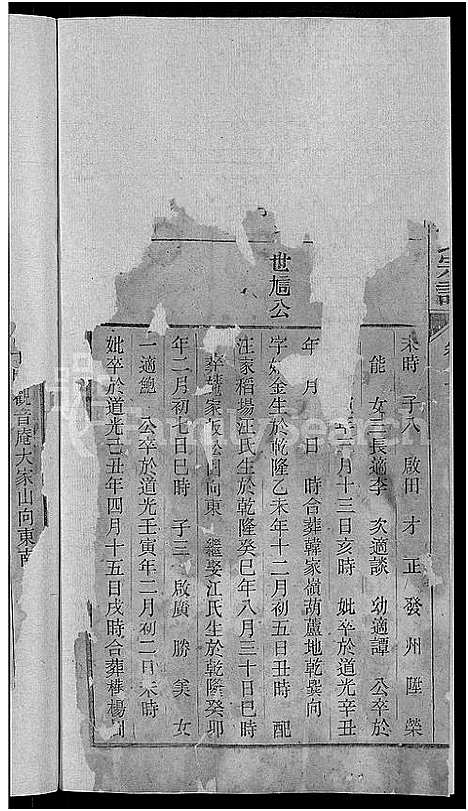 宗譜
未時 子八 啟田 才 正 發 州 陞 榮
能 女三長適李 次適談 幼適譚 公卒於
年二月十三日亥時 妣卒於道光辛丑
年 月 日 時合葬韓家嶺葫蘆地乾巽向
世旭公
字 金生於乾隆乙未年十二月初五日丑時 配
汪家稻場汪氏生於乾隆癸巳年八月三十日巳時
葬龍家 向東 繼娶江氏生於乾隆癸卯
年二月初七日巳時 子三 啟廣 勝 美 女
一適鮑 公卒於道光壬寅年二月初二日未時
妣卒於道光己丑年四月十五日戌時合葬 楊
觀音庵大家山向東南
FamilySearch